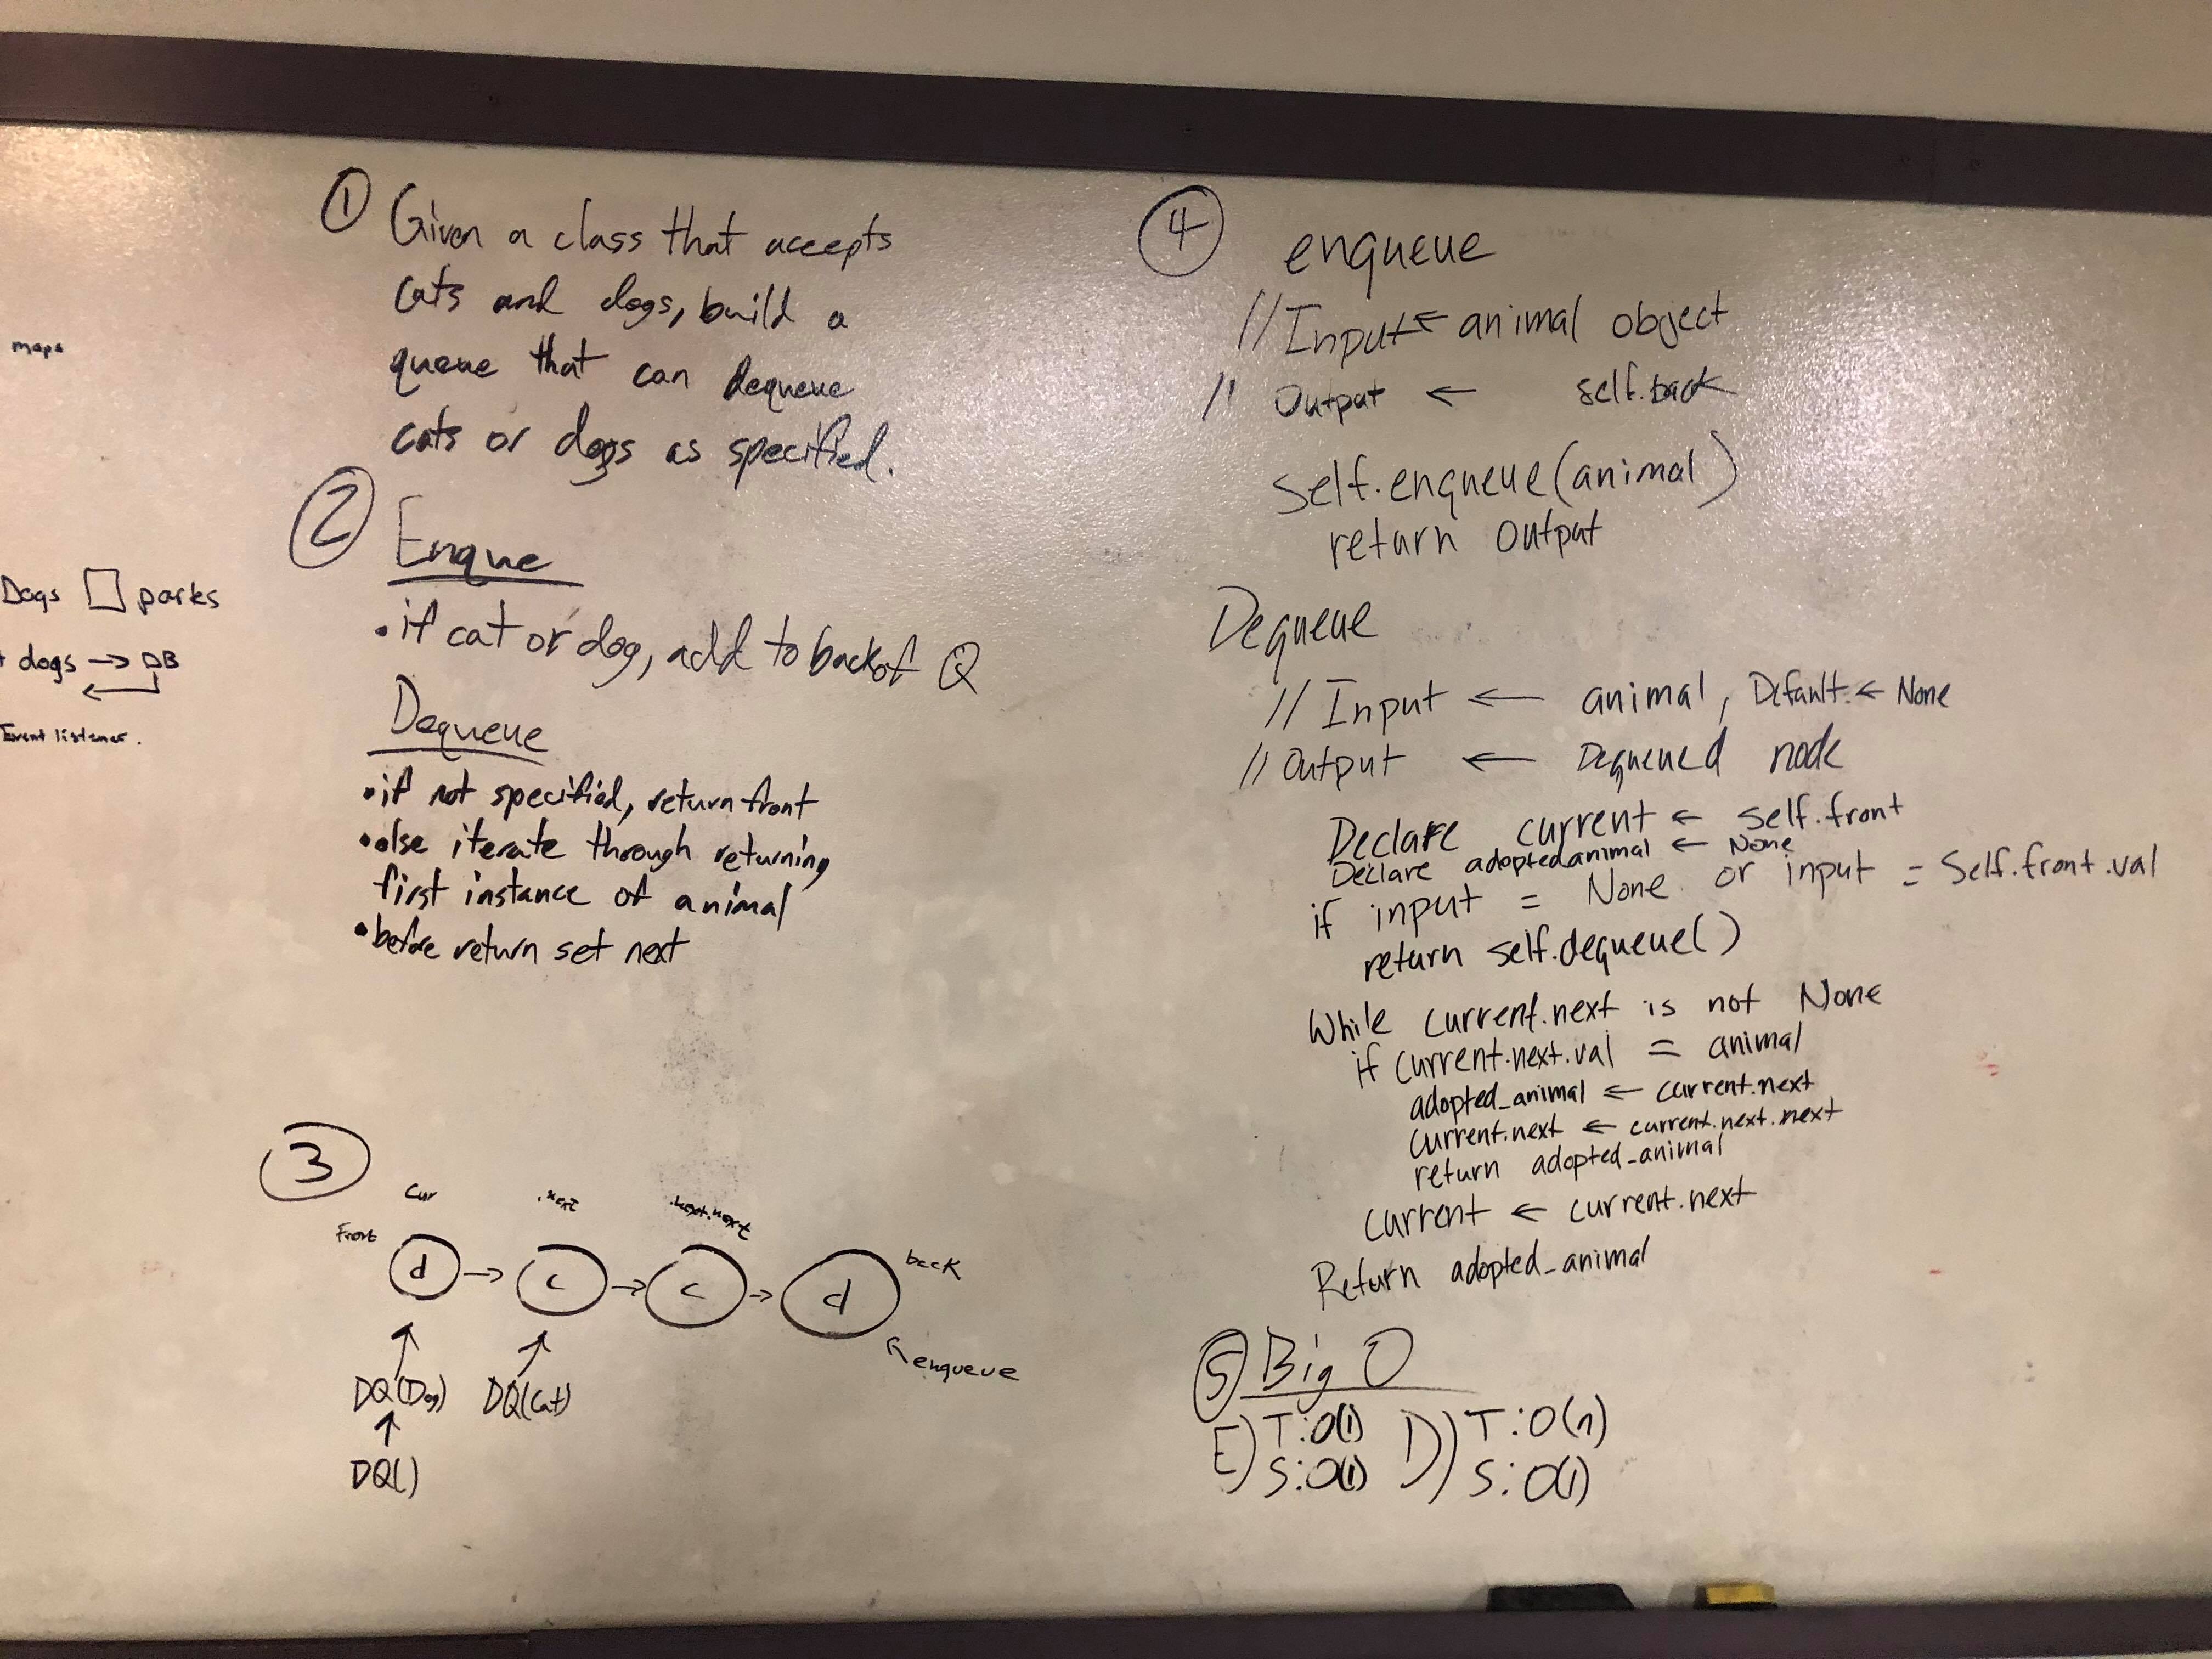 maps
Dogs □ parks
dogs → DB
Event listener.
① Given a class that accepts
cats and dogs, build a
queue that can dequeue
cats or dogs as specified.
② Enque
• if cat or dog, add to back of Q
Dequeue
• if not specified, return front
• else iterate through returning
first instance of animal
• before return set next
③
Cur .next .next.next
Front d → c → c → d back
enqueue
DQ(Dog) DQ(Cat)
DQ()
④ enqueue
// Input ← animal object
// Output ← self.back
Self.enqueue(animal)
return output
Dequeue
// Input ← animal, Default ← None
// Output ← Dequeued node
Declare current ← self.front
Declare adoptedanimal ← None
if input = None or input = Self.front.val
return self.dequeue()
While current.next is not None
if current.next.val = animal
adopted_animal ← current.next
Current.next ← current.next.next
return adopted_animal
Current ← current.next
Return adopted_animal
⑤ Big O
E) T:O(1) D) T:O(n)
S:O(1) S:O(1)